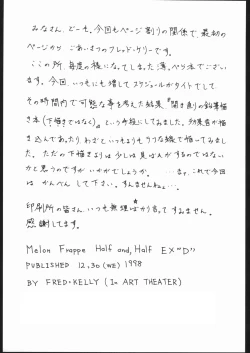 みなさん、どーも。今回もページ割りの関係で、最初の
ページから ごあいさつのフレッド・ケリーです。
ここの所、毎度の様になってしまった薄ぺら本でござい
ます。今回、いつにも増してスケジュールがタイトでして
その時間内で可能な事を考えた結果『開き直りの鉛筆描
き本(下描きではなく)』という手段にしてみました。効果音が描
き込んであったり、わざとちょっとちがう線で描いてみまし
た。ただの下描きよりは少しは見ばえがするのではない
かと思うのですがいかがでしょうか。 ……ま、これで今回
は、かんべん して下さい。すんませんねぇ…。
印刷所の皆さん、いつも無理ばかり言って すみません。
感謝してます。
Melon Frappe Half and, Half EX"D"
PUBLISHED 12.30 (WE) 1998
BY FRED・KELLY (In ART THEATER)